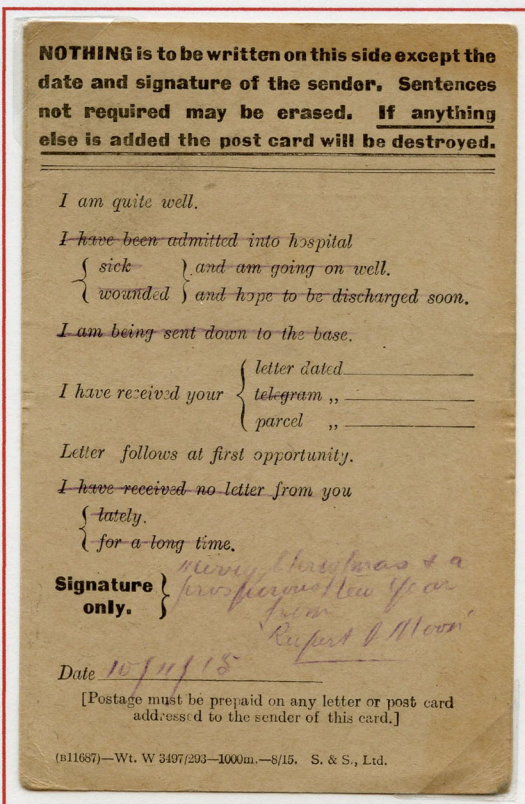 NOTHING is to be written on this side except the
date and signature of the sender. Sentences
not required may be erased. If anything
else is added the post card will be destroyed.
I am quite well.
I have been admitted into hospital
{ sick } and am going on well.
{ wounded } and hope to be discharged soon.
I am being sent down to the base.
letter dated
I have received your { telegram „
parcel „
Letter follows at first opportunity.
I have received no letter from you
{ lately.
{ for a long time.
Merry Christmas & a
Signature } prosperous New Year
only. from
Rupert V Moon
Date 10/11/15
[Postage must be prepaid on any letter or post card
addressed to the sender of this card.]
(B11687)—Wt. W 3497/293—1000m.—8/15. S. & S., Ltd.